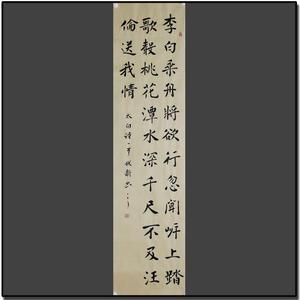 李白乘舟將欲行忽聞岍上踏
歌聲桃花潭水深千尺不及汪
倫送我情
太白詩一首